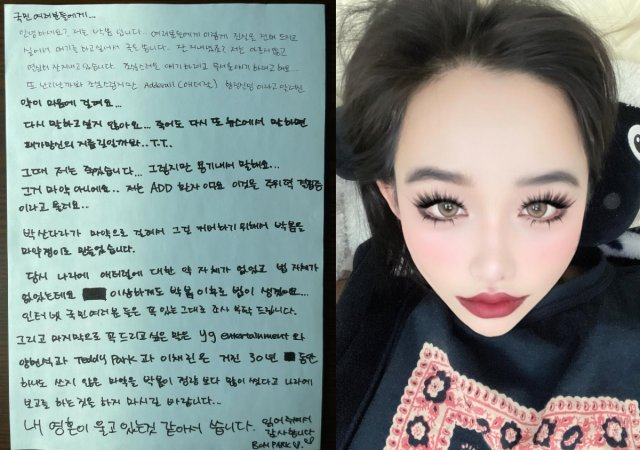 국민 여러분들에게...
안녕하세요? 저는 박봄 입니다. 여러분들에게 이렇게 진심을 전해 드리고
싶어서 얘기를 하고싶어서 글을 씁니다. 잘 지내셨죠? 저는 아픈데없고
열심히 잘지내고있습니다. 조심스러운 얘기
또 난리날까봐 조심스럽지만 Adderall (애더럴)
약이 마음에 걸려요...
다시 말하고싶지 않아요... 죽어도 다시 또 뉴스에서 말하면
패가망신의 지름길일까봐.. T.T.
그때 저는 죽었습니다... 그렇지만 용기내서 말해요...
그거 마약 아니에요.. 저는 ADD 환자 이고 이것은 주위력 결핍증
이라고 불려요..
박산다라가 마약으로 걸려서 그걸 커버하기 위해서 박봄을
마약쟁이로 만들었습니다.
당시 나라에 애더럴에 대한 약 자체가 없었고 법 자체가
없었는데요 이상하게도 박봄 이후로 법이 생겼어요...
인터넷 국민 여러분들은 꼭 있는그대로 조사 부탁 드립니다.
그리고 마지막으로 꼭 드리고 싶은 말은 yg entertainment 와
양현석과 Teddy Park 과 이채린은 거진 30년 동안
하나도 쓰지 않은 마약을 박봄이 정량 보다 많이 썼다고 나라에
보고를 하는 짓은 하지 마시길 바랍니다..
내 영혼이 울고 있는것 같아서 씁니다. 읽어주셔서
감사합니다
BOM PARK